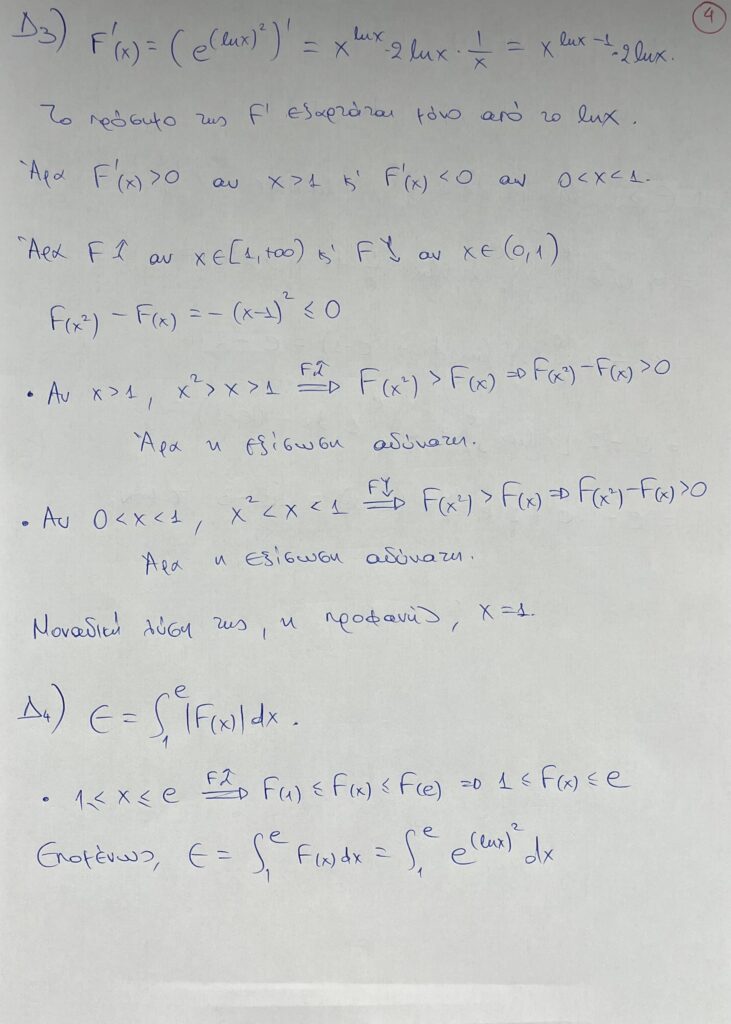 4
Δ3) F'(x) = (e^{(lnx)^2})' = x^{lnx} · 2lnx · 1/x = x^{lnx-1} · 2lnx.
Το πρόσημο της F' εξαρτάται μόνο από το lnx.
Άρα F'(x)>0 αν x>1 κ' F'(x)<0 αν 0<x<1.
Άρα F↑ αν x∈[1,+∞) κ' F↓ αν x∈(0,1)
F(x²) - F(x) = -(x-1)² ≤ 0
• Αν x>1, x²>x>1 ⟹^{F↑} F(x²)>F(x) ⇒ F(x²)-F(x)>0
Άρα η εξίσωση αδύνατη.
• Αν 0<x<1, x²<x<1 ⟹^{F↓} F(x²)>F(x) ⇒ F(x²)-F(x)>0
Άρα η εξίσωση αδύνατη.
Μοναδική λύση της, η προφανής, x=1.
Δ4) E = ∫_1^e |F(x)| dx.
• 1≤x≤e ⟹^{F↑} F(1)≤F(x)≤F(e) ⇒ 1≤F(x)≤e
Επομένως, E = ∫_1^e F(x)dx = ∫_1^e e^{(lnx)^2} dx